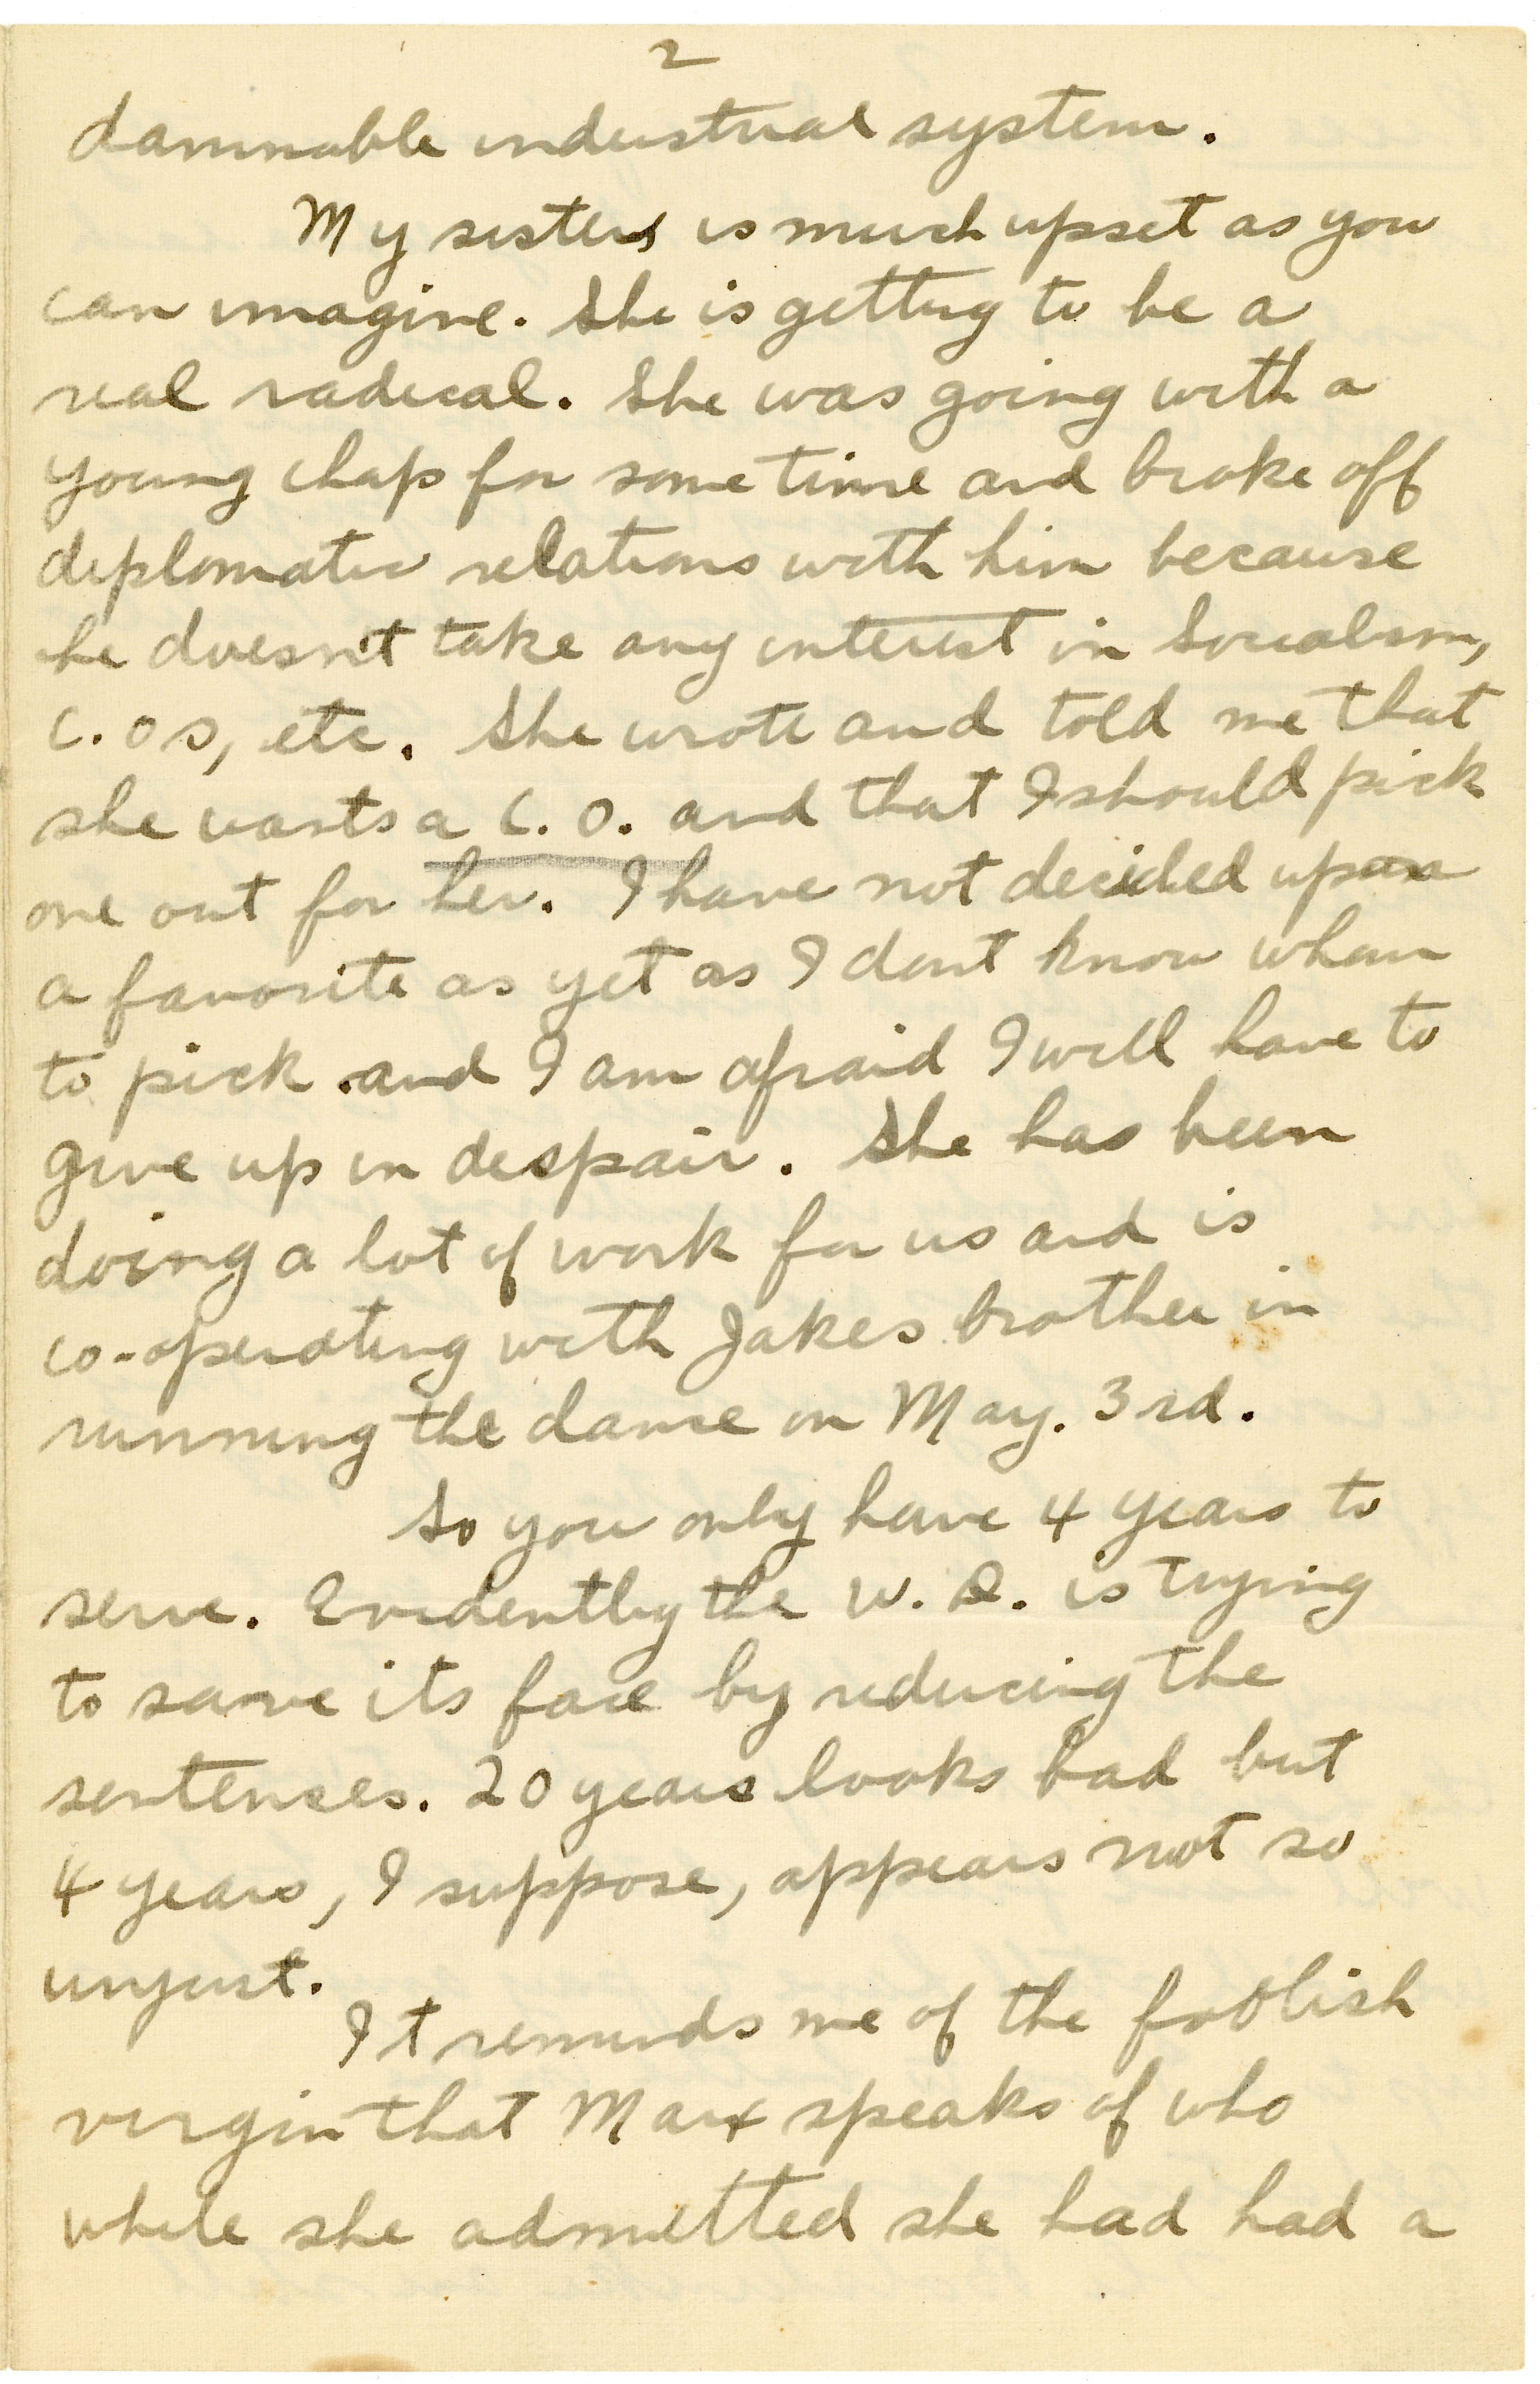 2
damnable industrial system.
My sister is much upset as you
can imagine. She is getting to be a
real radical. She was going with a
young chap for some time and broke off
diplomatic relations with him because
he doesn't take any interest in Socialism,
C.Os, etc. She wrote and told me that
she wants a C.O. and that I should pick
one out for her. I have not decided upon
a favorite as yet as I dont know whom
to pick and I am afraid I will have to
give up in despair. She has been
doing a lot of work for us and is
co-operating with Jakes brother in
running the dance on May. 3rd.
So you only have 4 years to
serve. Evidently the W. D. is trying
to save its face by reducing the
sentences. 20 years looks bad but
4 years, I suppose, appears not so
unjust.
It reminds me of the foolish
virgin that Marx speaks of who
while she admitted she had had a